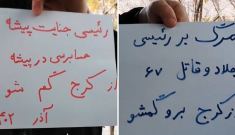 رئیسی جنایت پیشه
حسابرسی در پیشه
از کرج گم شو
آذر
مرگ بر رئیسی
جلاد و قاتل ۶۷
از کرج برو گمشو